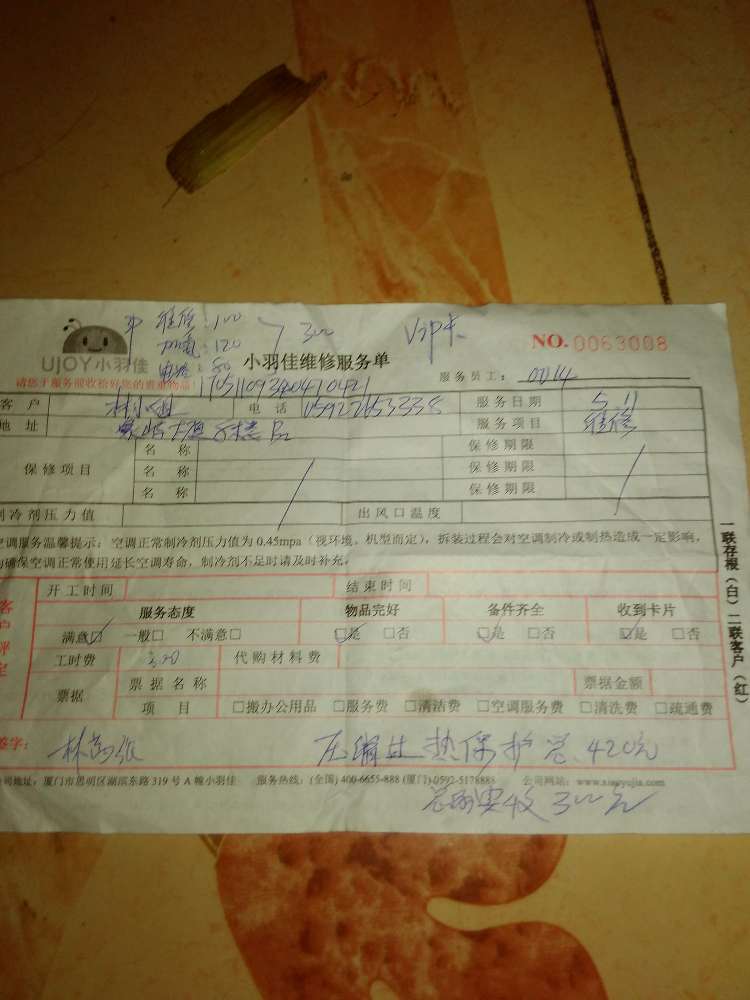 维修:100 300 Vip卡
加氟:120
电容:80
UJOY小羽佳 小羽佳维修服务单 NO.0063008
请您于服务前收拾好您的贵重物品! 服务员工: 0014
17051109320410421
客户 林小姐 电话 服务日期 5.11
地址 服务项目 维修
保修项目 名称 保修期限
名称 保修期限
名称 保修期限
制冷剂压力值 出风口温度
空调服务温馨提示:空调正常制冷剂压力值为0.45mpa(视环境、机型而定),拆装过程会对空调制冷或制热造成一定影响,
为确保空调正常使用延长空调寿命,制冷剂不足时请及时补充。
开工时间 结束时间
客户评定 服务态度 物品完好 备件齐全 收到卡片
满意☑ 一般□ 不满意□ ☑是 □否 ☑是 □否 ☑是 □否
工时费 300 代购材料费
票据 票据名称 票据金额
项目 □搬办公用品 □服务费 □清洁费 □空调服务费 □清洗费 □疏通费
签字: 压缩机热保护 总420元
公司地址:厦门市思明区湖滨东路319号A幢小羽佳 服务热线:(全国)400-6655-888 (厦门)0592-5178888 公司网站:www.xiaoyujia.com
实收300元
一联存根(白)二联客户(红)